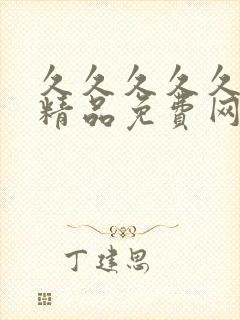 久久久久久
精品免费网
丁建思